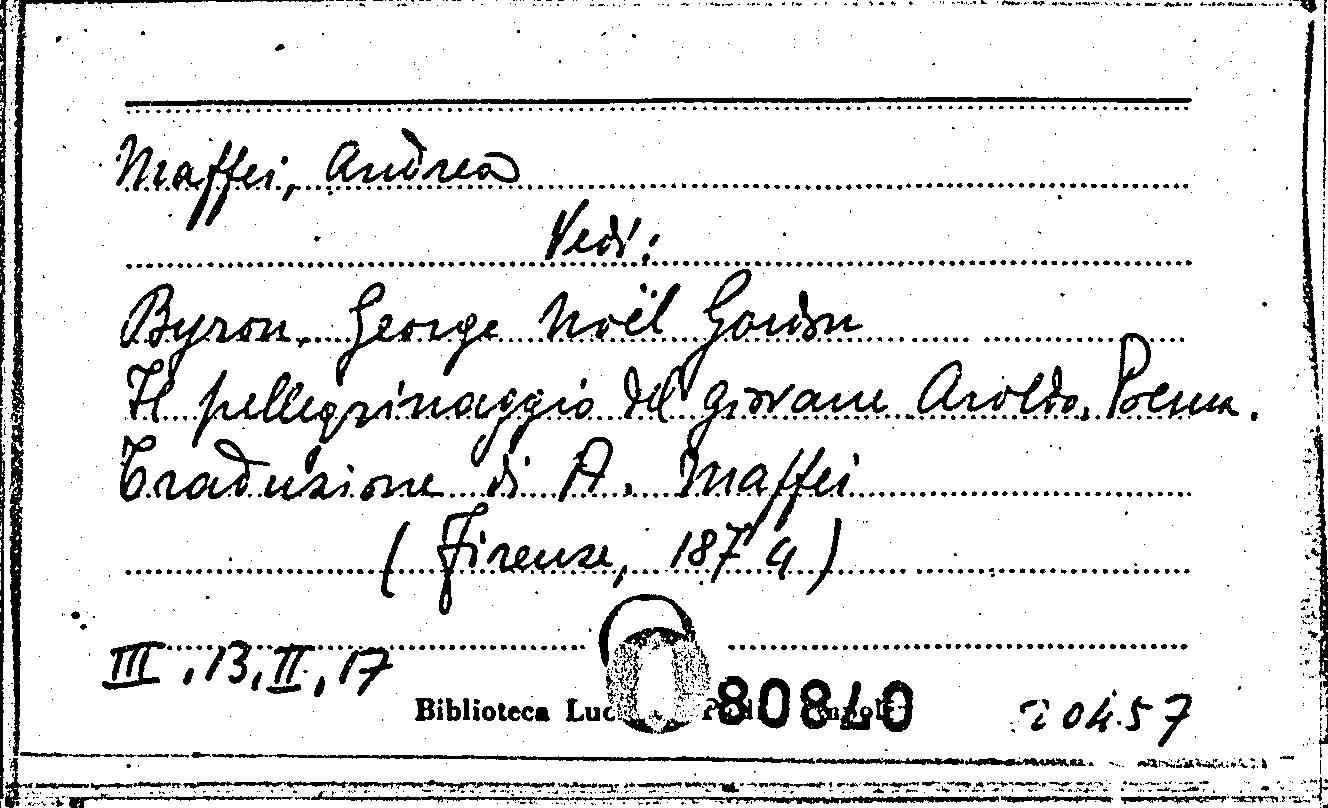 Maffei, Andrea
Vedi:
Byron, George Noël Gordon
Il pellegrinaggio del giovane Aroldo. Poema.
Traduzione di A. Maffei
(Firenze, 1874)
III.13.II.17
Biblioteca 80870 20457